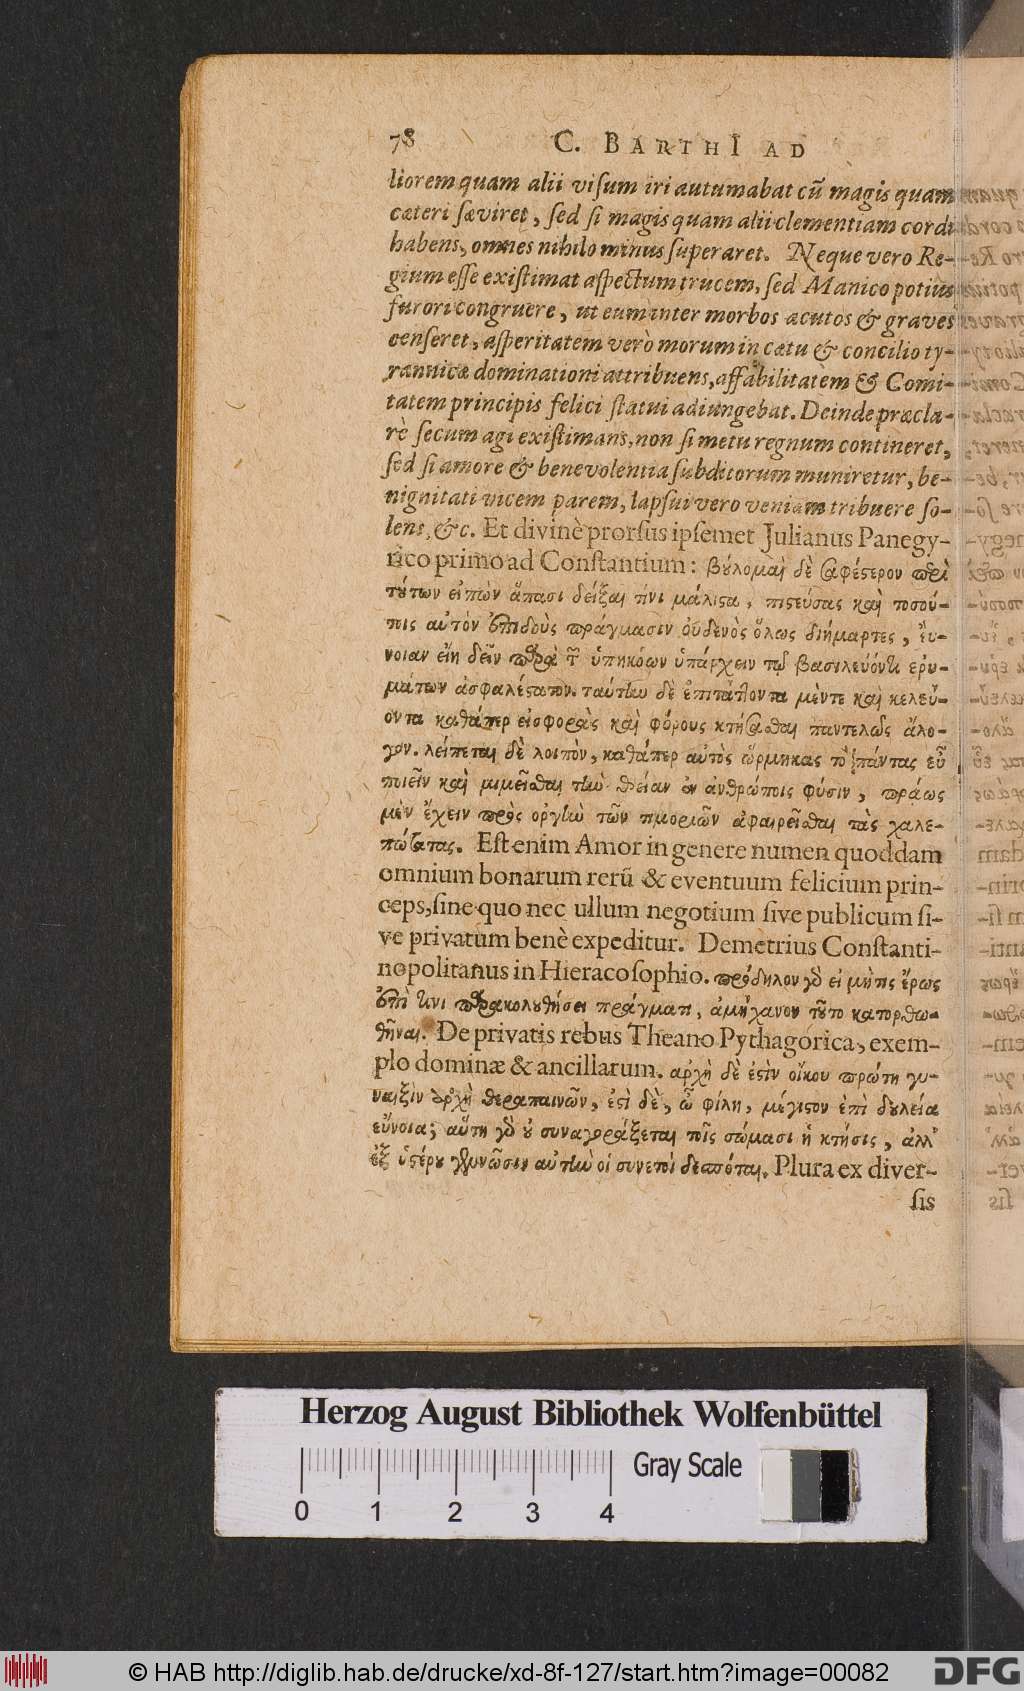 78 C. BARTHI AD
liorem quam alii visum iri autumabat cũ magis quam
cæteri sæviret, sed si magis quam alii clementiam cordi
habens, omnes nihilo minus superaret. Neque vero Re-
gium esse existimat aspectum trucem, sed Manico potius
furori congruere, ut eum inter morbos acutos & graves
censeret, asperitatem verò morum in cœtu & concilio ty-
rannicæ dominationi attribuens, affabilitatem & Comi-
tatem principis felici statui adiungebat. Deinde præcla-
rè secum agi existimans, non si metu regnum contineret,
sed si amore & benevolentia subditorum muniretur, be-
nignitati vicem parem, lapsui vero veniam tribuere so-
lens, &c. Et divinè prorsus ipsemet Julianus Panegy-
rico primo ad Constantium: βύλομαι δὲ σαφέςερον περὶ
τύτων εἰπὼν ἅπασι δεῖξαι τίνι μάλιςα, πιςεύσας καὶ τοσού-
τοις αὑτὸν ἐπιδοὺς πράγμασιν οὐδενὸς ὅλως διήμαρτες, ἔυ-
νοιαν εἴη δεῖν παρὰ τ῀ ὑπηκόων ὑπάρχειν τῷ βασιλεύοντι ἐρυ-
μάτων ἀσφαλέςατον. ταύτην δὲ ἐπιτάττοντα μὲν τε καὶ κελεύ-
οντα καθάπερ εἰσφορὰς καὶ φόρους κτήσασθαι παντελῶς ἄλο-
γον. λείπεται δὲ λοιπὸν, καθάπερ αὐτὸς ὥρμηκας τὸ πάντας εὖ
ποιεῖν καὶ μιμεῖσθαι τὴν θείαν ἐν ἀνθρώποις φύσιν, πράως
μὲν ἔχειν πρὸς ὀργὴν τῶν τιμοριῶν ἀφαιρεῖσθαι τὰς χαλε-
πώτατας. Est enim Amor in genere numen quoddam
omnium bonarum rerũ & eventuum felicium prin-
ceps, sine quo nec ullum negotium sive publicum si-
ve privatum benè expeditur. Demetrius Constanti-
nopolitanus in Hieracosophio. πρόδηλον γὸ εἰ μήτις ἔρως
ἐπὶ τινι παρακολυθήσει πράγματι, ἀμήχανον τῦτο κατορθω-
θῆναι. De privatis rebus Theano Pythagorica, exem-
plo dominæ & ancillarum. ἀρχὴ δὲ ἐςὶν οἴκου πρώτη γυ-
ναιξὶν ἀρχὴ θεραπαινῶν, ἐςὶ δὲ, ὦ φίλη, μέγιςον ἐπὶ δυλεία
εὔνοια; αὕτη γὸ ὐ συναγοράζεται τοῖς σώμασι ἡ κτῆσις, ἀλλ'
ἐξ ὑςέρυ γεννῶσιν αὐτὴν οἱ συνετοὶ δεσπόται. Plura ex diver-
sis
Herzog August Bibliothek Wolfenbüttel
0 1 2 3 4 Gray Scale
© HAB http://diglib.hab.de/drucke/xd-8f-127/start.htm?image=00082 DFG